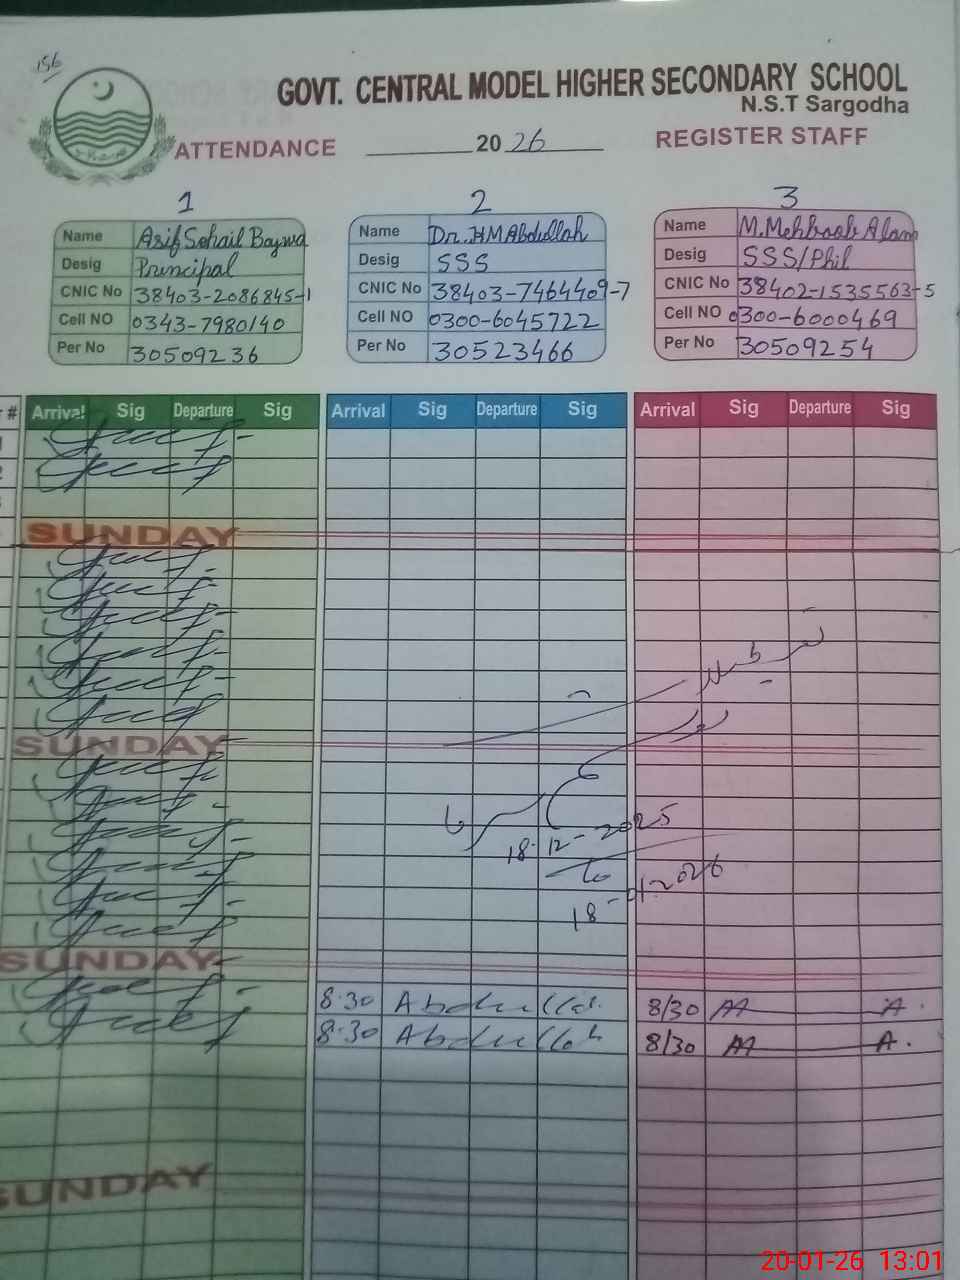 156
GOVT. CENTRAL MODEL HIGHER SECONDARY SCHOOL
N.S.T Sargodha
ATTENDANCE 2026 REGISTER STAFF
1
Name Asif Sohail Bajwa
Desig Principal
CNIC No 38403-2086845-1
Cell NO 0343-7980140
Per No 30509236
2
Name Dr. H M Abdullah
Desig SSS
CNIC No 38403-7464409-7
Cell NO 0300-6045722
Per No 30523466
3
Name M. Mehboob Alam
Desig SSS/Phil
CNIC No 38402-1535563-5
Cell NO 0300-6000469
Per No 30509254
r # Arrival Sig Departure Sig Arrival Sig Departure Sig Arrival Sig Departure Sig
1
2
SUNDAY
تعطیلات
SUNDAY
18-12-2025
to
18-01-2026
SUNDAY
8:30 Abdullah 8/30 A
8:30 Abdullah 8/30 A.
SUNDAY
20-01-26 13:01